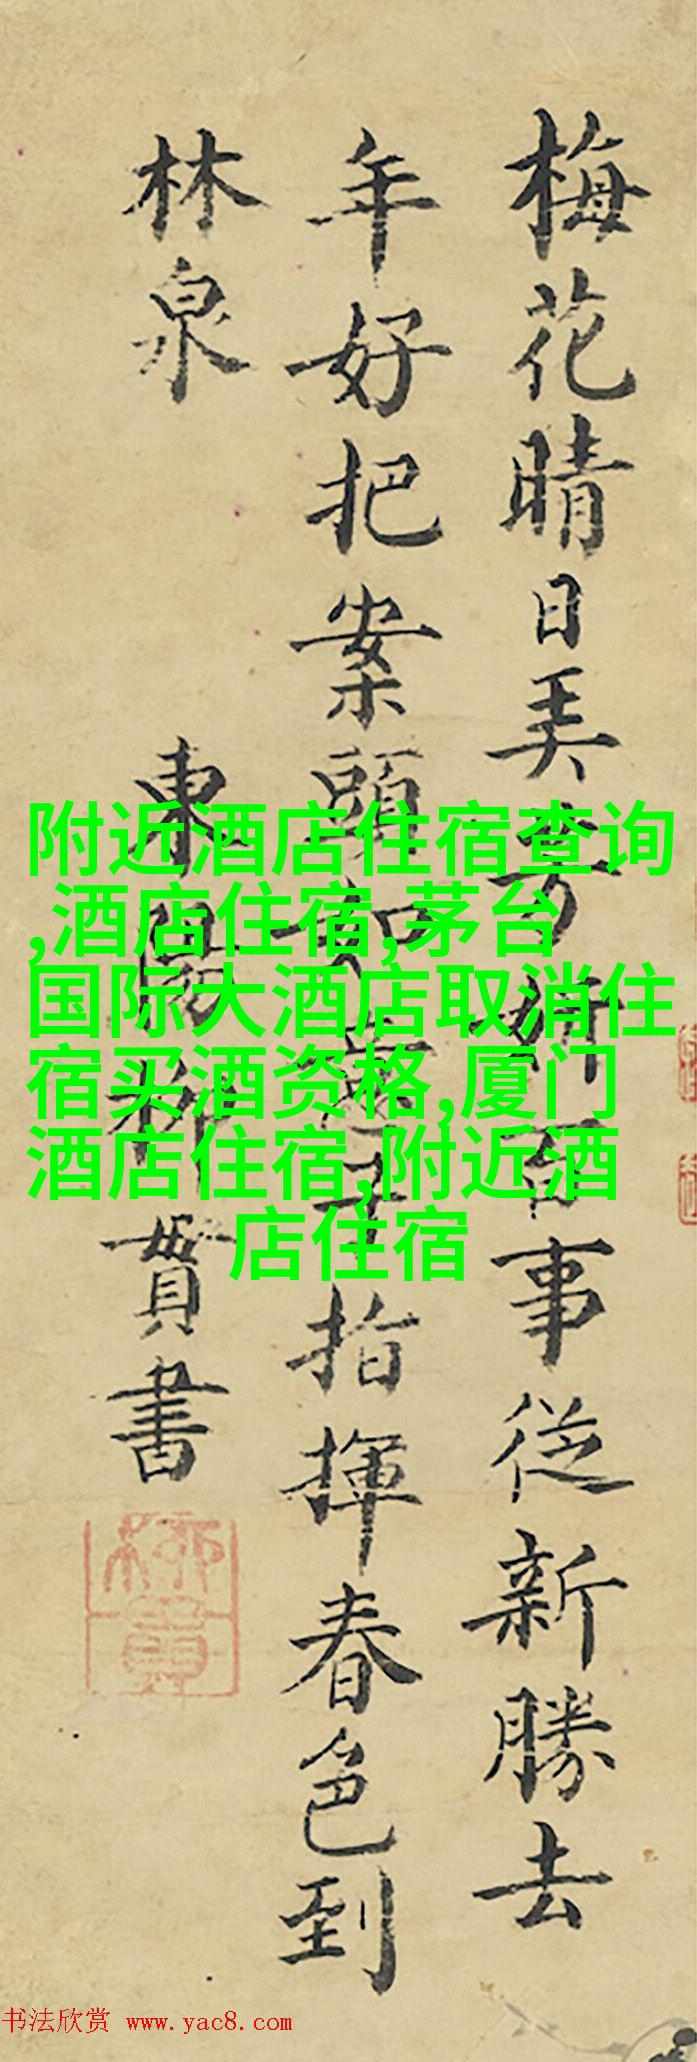 梅花晴日美芳妍百事從新勝去
年好把案頭如意子指揮春色到
林泉
東陽柳貫書
柳貫
附近酒店住宿查询
,酒店住宿,茅台
国际大酒店取消住
宿买酒资格,厦门
酒店住宿,附近酒
店住宿
书法欣赏 www.yac8.com